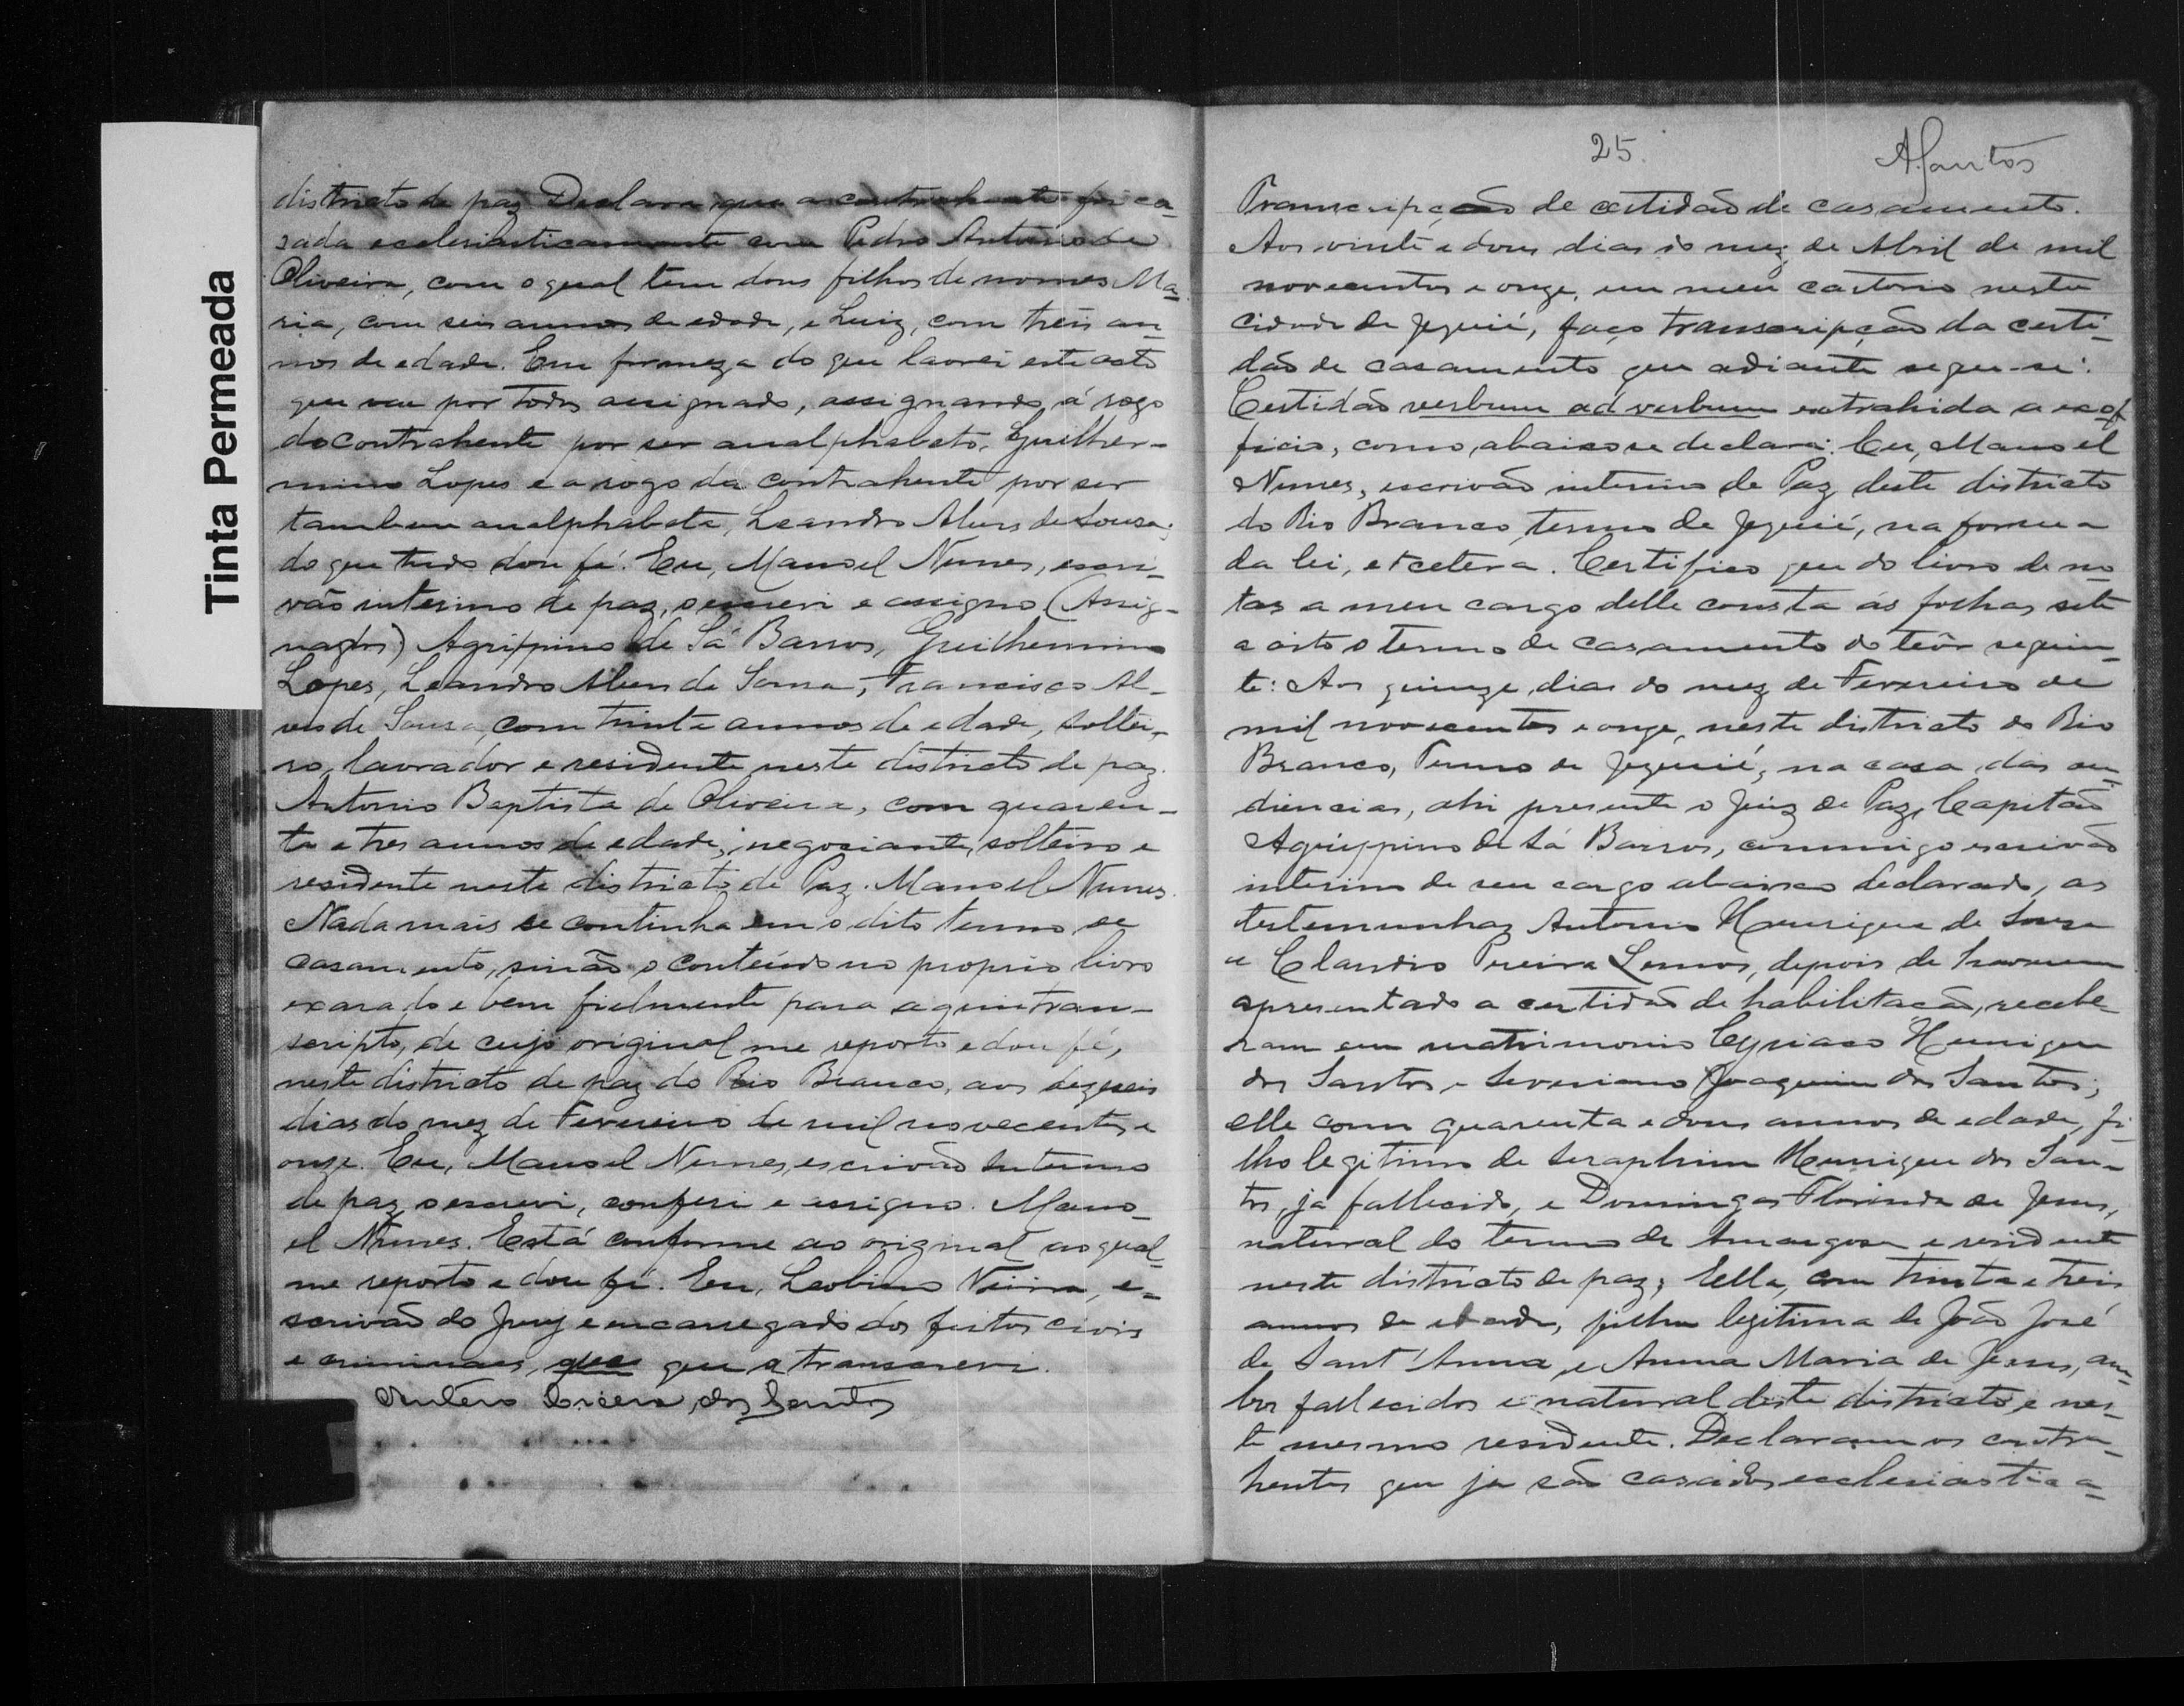 Tinta Permeada
districto de paz Declara que a contrahente foi ca-
sada ecclesiasticamente com Pedro Antonio de
Oliveira, com o qual tem dous filhos de nomes Ma-
ria, com seis annos de edade, e Luiz, com treis an-
nos de edade. Em firmeza do que lavrei este acto
que vae por todos assignado, assignando á rogo
do contrahente por ser analphabeto, Guilher-
mino Lopes e a rogo da contrahente por ser
tambem analphabeta, Leandro Alves de Sousa;
do que tudo dou fé. Eu, Manoel Nunes, escri-
vão interino de paz, o escrevi e assigno (Assig-
nados) Agrippino de Sá Barros, Guilhermino
Lopes, Leandro Alves de Sousa, Francisco Al-
ves de Sousa, com trinta annos de edade, soltei-
ro, lavrador e residente neste districto de paz.
Antonio Baptista de Oliveira, com quaren-
ta e tres annos de edade, negociante, solteiro e
residente neste districto de Paz. Manoel Nunes.
Nada mais se continha em o dito termo de
casamento, sinão o conteúdo no proprio livro
exarado e bem fielmente para aqui tran-
scripto, de cujo original me reporto e dou fé,
neste districto de paz do Rio Branco, aos dezeseis
dias do mez de Fevereiro de mil novecentos e
onze. Eu, Manoel Nunes, escrivão interino
de paz, o escrevi, conferi e assigno. Mano-
el Nunes. Está conforme ao original ao qual
me reporto e dou fé. Eu, Leobino Vieira, e-
scrivão do Jury e encarregado dos feitos civis
e criminaes, que que a transcrevi.
dos Santos
25.
A. Santos
Transcripção de certidão de casamento.
Aos vinte e dous dias do mez de Abril de mil
novecentos e onze, em meu cartorio nesta
cidade de Jequié, faço transcripção da certi-
dão de casamento que adiante segue-se:
Certidão verbum ad verbum extrahida a exof-
ficio, como abaixo se declara: Eu, Manoel
Nunes, escrivão interino de Paz deste districto
do Rio Branco, termo de Jequié, na forma
da lei, etcetera. Certifico que do livro de no-
tas a meu cargo delle consta ás folhas sete
a oito o termo de casamento do teôr seguin-
te: Aos quinze dias do mez de Fevereiro de
mil novecentos e onze, neste districto do Rio
Branco, Termo de Jequié, na casa das au-
diencias, ahi presente o Juiz de Paz, Capitão
Agrippino de Sá Barros, commigo escrivão
interino de seu cargo abaixo declarado, as
testemunhas Antonio Henrique de Sousa
e Claudio Pereira Lemos, depois de haverem
apresentado a certidão de habilitação, recebe-
ram em matrimonio Cyriaco Henrique
dos Santos e Severiana Joaquina dos Santos;
elle com quarenta e dous annos de edade, fi-
lho legitimo de Seraphim Henrique dos San-
tos, ja fallecido, e Domingas Florinda de Jesus,
natural do termo de Amargosa e residente
neste districto de paz; Ella, com trinta e treis
annos de edade, filha legitima de João José
de Sant'Anna, e Anna Maria de Jesus, am-
bos fallecidos e natural deste districto e nes-
te mesmo residente. Declararam os contra-
hentes que ja são casados ecclesiastica-